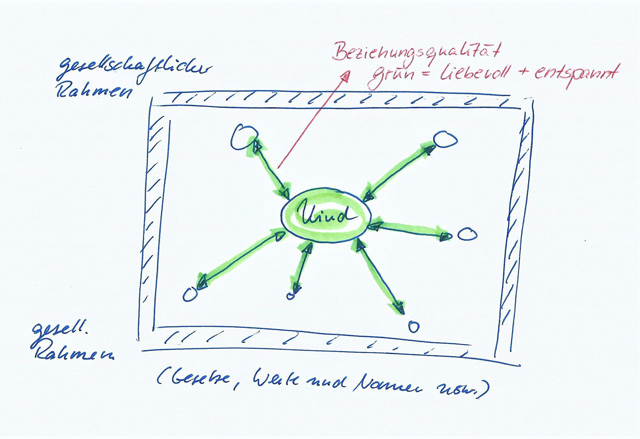 Beziehungsqualität
grün = liebevoll + entspannt
gesellschaftlicher
Rahmen
Kind
gesell.
Rahmen
(Gesetze, Werte und Normen usw.)